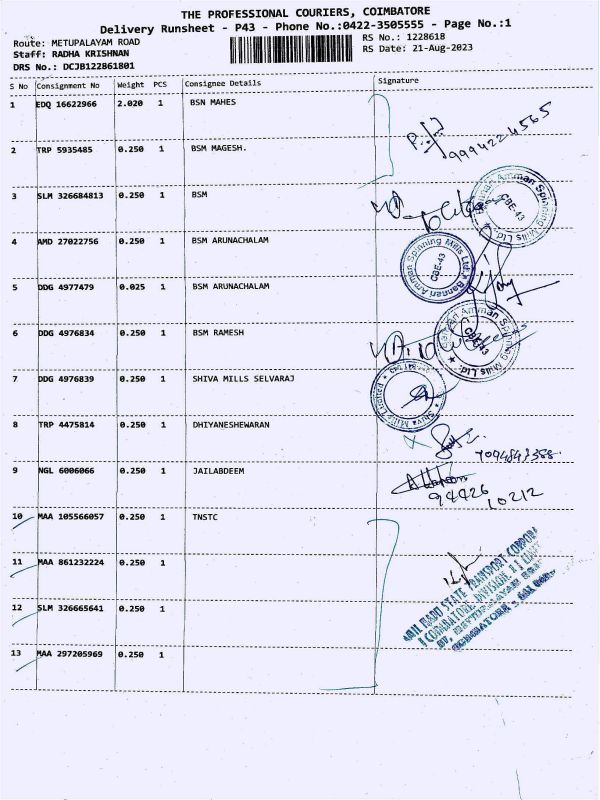 THE PROFESSIONAL COURIERS, COIMBATORE
Delivery Runsheet - P43 - Phone No.:0422-3505555 - Page No.:1
Route: METUPALAYAM ROAD
RS No.: 1228618
Staff: RADHA KRISHNAN
RS Date: 21-Aug-2023
DRS No.: DCJB122861801
S No Consignment No Weight PCS Consignee Details Signature
1 EDQ 16622966 2.020 1 BSN MAHES
9994224565
2 TRP 5935485 0.250 1 BSM MAGESH.
3 SLM 326684813 0.250 1 BSM
Bannari Amman Spinning Mills Ltd. CBE-43
4 AMD 27022756 0.250 1 BSM ARUNACHALAM
Bannari Amman Spinning Mills Ltd. CBE-43
5 DDG 4977479 0.025 1 BSM ARUNACHALAM
6 DDG 4976834 0.250 1 BSM RAMESH
Bannari Amman Spinning Mills Ltd. CBE-43
7 DDG 4976839 0.250 1 SHIVA MILLS SELVARAJ
Shiva Mills Limited
8 TRP 4475814 0.250 1 DHIYANESHEWARAN
9 NGL 6006066 0.250 1 JAILABDEEM
94426
10212
10 MAA 105566057 0.250 1 TNSTC
11 MAA 861232224 0.250 1
TAMIL NADU STATE TRANSPORT CORPORA
12 SLM 326665641 0.250 1
13 MAA 297205969 0.250 1